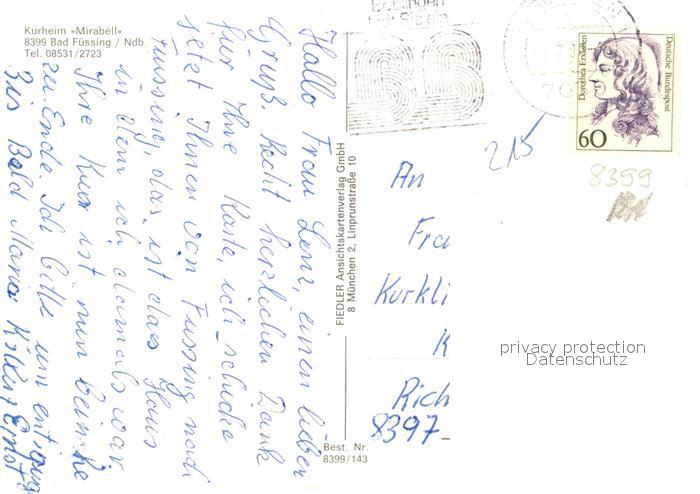 Kurheim »Mirabell«
8399 Bad Füssing / Ndb.
Tel. 08531/2723
Hallo Frau Lenz, einen lieber
Gruß. Recht herzlichen Dank
für Ihre Karte, ich schicke
jetzt Ihnen von Füssing noch
das ist das Haus
in dem ich damals war
Ihre Kur ist nun beinahe
zu Ende. Ich bitte um
Bis Bald Maria
FIEDLER Ansichtskartenverlag GmbH
8 München 2, Linprunstraße 10
Best. Nr.
8399/143
Böblingen
BB
70
Dorothea Erxleben
Deutsche Bundespost
60
215
8399
An
Fra
Kurkli
K
Rich
8397
privacy protection
Datenschutz